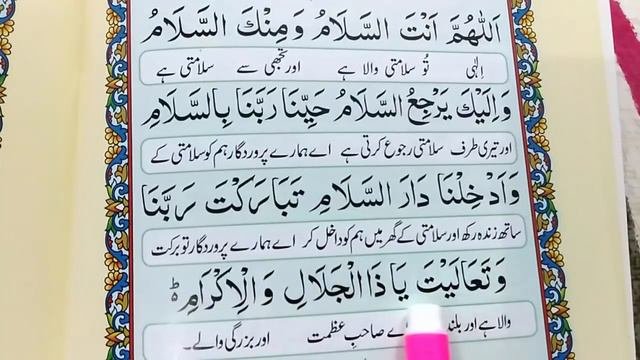 اَللّٰهُمَّ اَنْتَ السَّلَامُ وَمِنْكَ السَّلَامُ
الٰہی تُو سلامتی والا ہے اور تجھی سے سلامتی ہے
وَاِلَيْكَ يَرْجِعُ السَّلَامُ حَيِّنَا رَبَّنَا بِالسَّلَامِ
اور تیری طرف سلامتی رجوع کرتی ہے اے ہمارے پروردگار ہم کو سلامتی کے
وَاَدْخِلْنَا دَارَ السَّلَامِ تَبَارَكْتَ رَبَّنَا
ساتھ زندہ رکھ اور سلامتی کے گھر میں ہم کو داخل کر اے ہمارے پروردگار تو برکت
وَتَعَالَيْتَ يَا ذَا الْجَلَالِ وَالْاِكْرَامِ ؕ
والا ہے اور بلند اے صاحب عظمت اور بزرگی والے۔